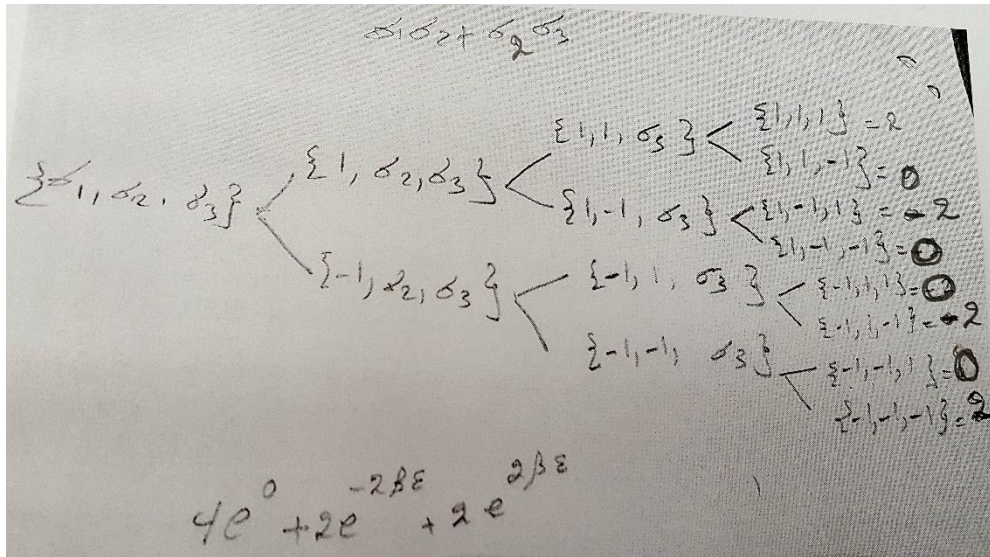 σ₁σ₂ + σ₂σ₃
{σ₁, σ₂, σ₃}
{1, σ₂, σ₃}
{-1, σ₂, σ₃}
{1, 1, σ₃}
{1, -1, σ₃}
{-1, 1, σ₃}
{-1, -1, σ₃}
{1, 1, 1} = 2
{1, 1, -1} = 0
{1, -1, 1} = -2
{1, -1, -1} = 0
{-1, 1, 1} = 0
{-1, 1, -1} = -2
{-1, -1, 1} = 0
{-1, -1, -1} = 2
4e⁰ + 2e^(-2βε) + 2e^(2βε)